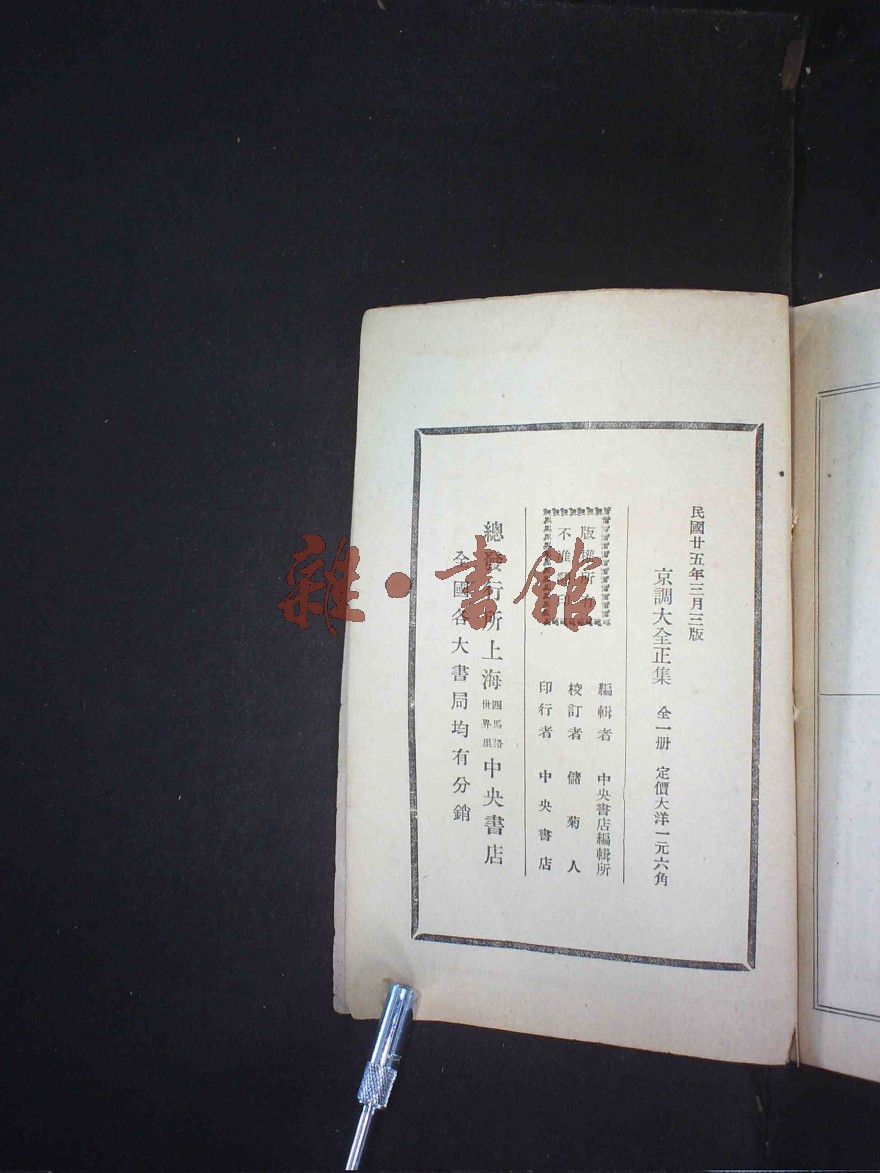 民國廿五年三月三版
京調大全正集 全一册 定價大洋一元六角
編輯者 中央書店編輯所
校訂者 儲菊人
印行者 中央書店
版權所有
不准翻印
總發行所上海四馬路世界里中央書店
全國各大書局均有分銷
雜·書館